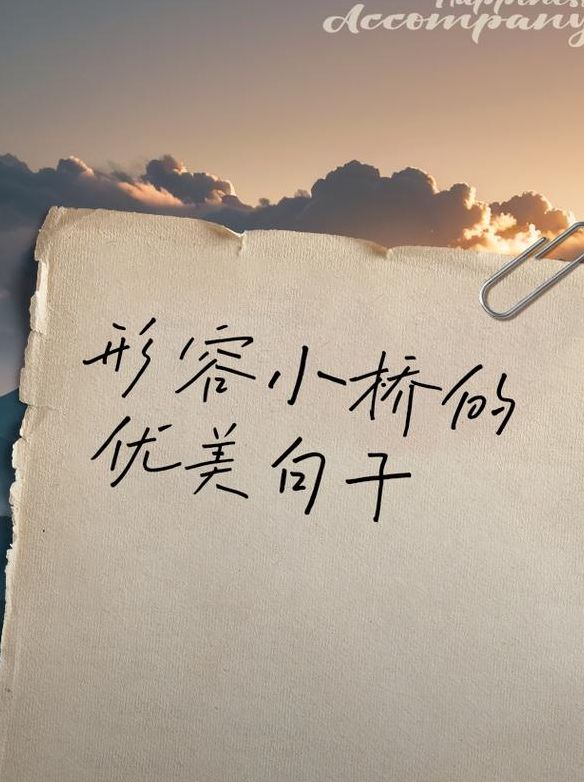 Happiness
Accompany
形容小桥的
优美句子